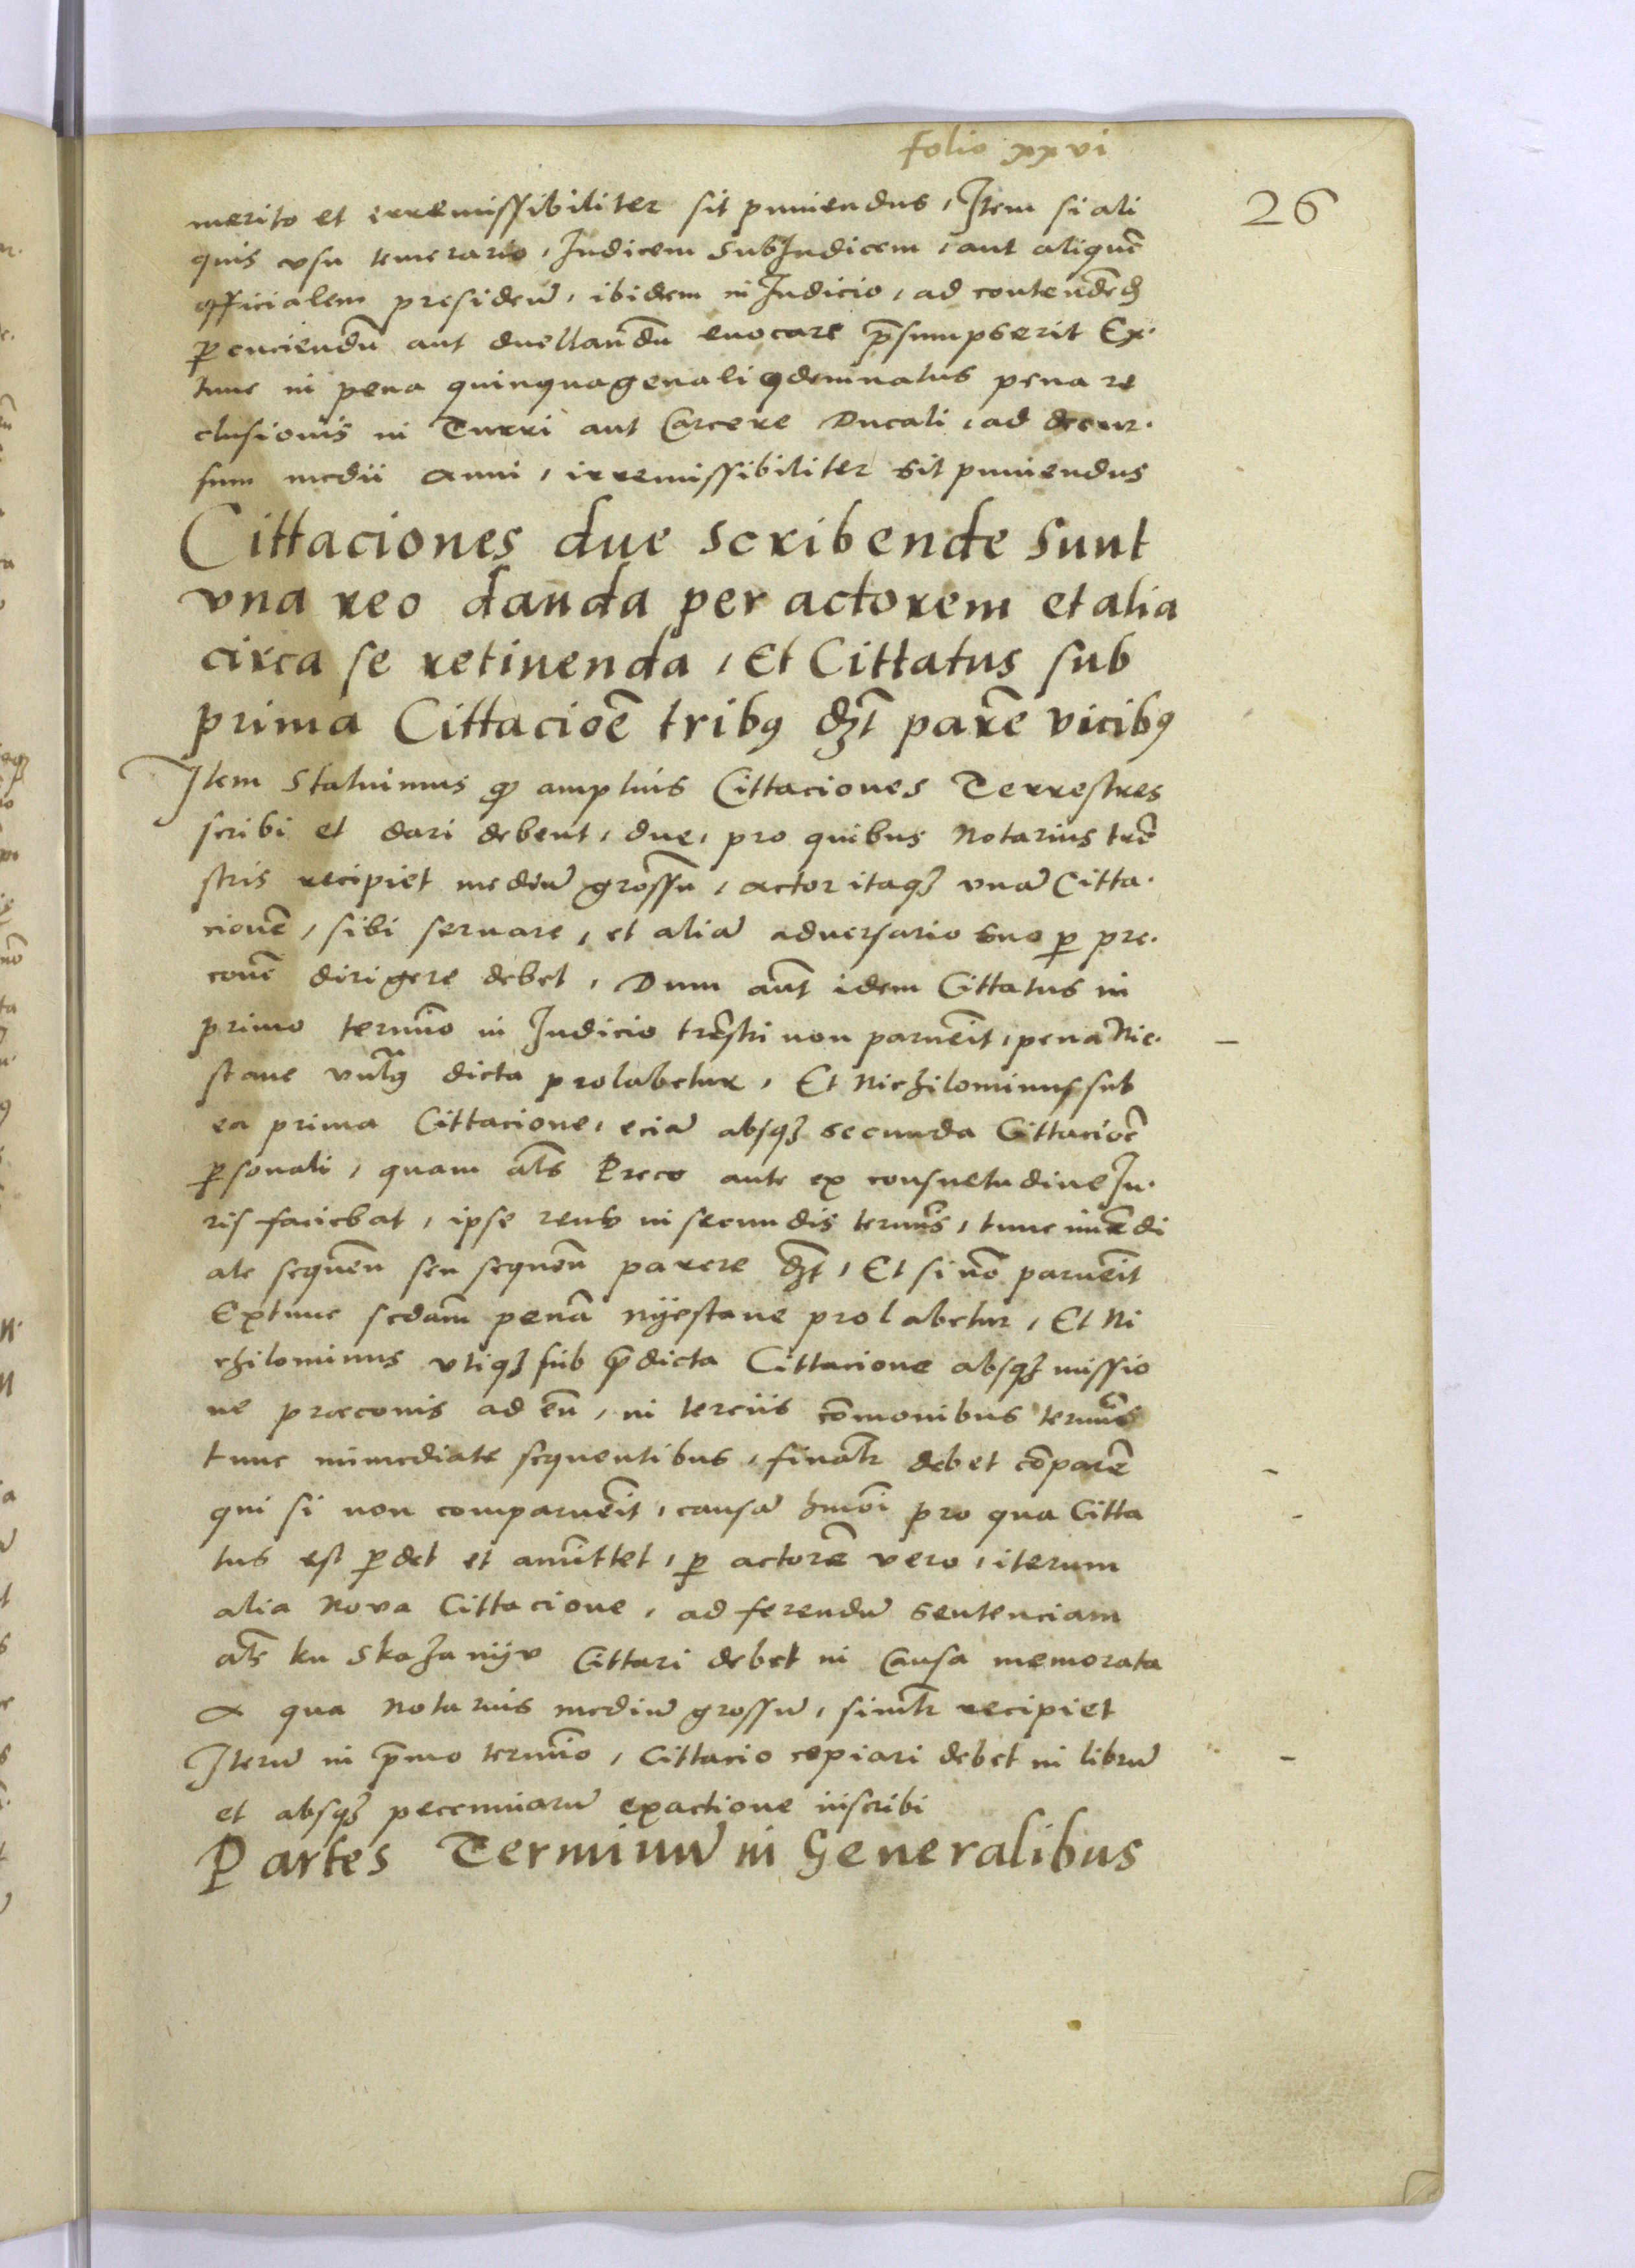 folio xxvi
26
merito et irremissibiliter sit puniendus, Item si ali
quis vsu temerario, Iudicem SubIudicem, aut aliquē
officialem presideū, ibidem in Iudicio, ad contendēdū
aut duellandū euocare p̄sumpserit Ex.
tunc in pena quinquagenali ꝯdemnatus pena re
clusionis in Turri aut Carcere Ducali, ad decur.
sum medii anni, irremissibiliter sit puniendus
Cittaciones due scribende sunt
vna reo danda per actorem et alia
circa se retinenda, Et Cittatus sub
prima Cittacioē tribꝰ dꝫt parēe vicibꝰ
Item Statuimus ꝙ amplius Cittaciones Terrestres
scribi et dari debent, due, pro quibus Notarius trē
stris recipiet mediū grossū, actor itaqꝫ vnā Citta.
cionē, sibi seruare, et aliā aduersario suo ꝑ pre.
conē dirigere debet, Dum aūt idem Cittatus in
primo termīo in Iudicio trēstri non paruēit, pena Nie.
stane vulgꝰ dicta prolabetur, Et Nichilominus sub
ea prima Cittacione, eciā absqꝫ secunda Cittacioē
ꝑsonali, quam al̄s Preco ante ex consuetudine Iu.
ris faciebat, ipse reus in secundis termīs, tunc īmedi
ate sequēn seu sequēn parere dꝫt, Et si nō paruēit
Extunc scdam penā nyestane prolabetur, Et Ni
chilominus vtiqꝫ sub p̄dicta Cittacione absqꝫ missio
ne præconis ad eū, in terciis cōmonibus termīs
tunc immediate sequentibus, finalr̄ debet cōparēe
qui si non comparuēit, causā hmōi pro qua Citta
tus est ꝑdet et amittet, ꝑ actorē vero, iterum
alia Nova Cittacione, ad ferendū sentenciam
al̄s ku skazanyv Cittari debet in Causa memorata
A qua Notarius mediū grossū, similr̄ recipiet
Iterū in p̄mo termīo, Cittacio copiari debet in librū
et absqꝫ pecuniarū exactione inscribi
Partes Terminū in Generalibus